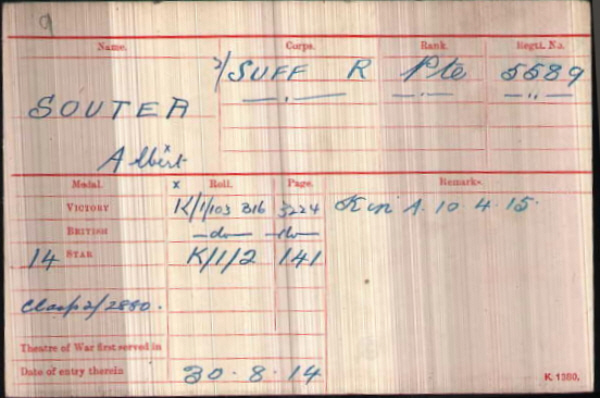 9
Name. Corps. Rank. Regtl. No.
2/SUFF R Pte 5589
— . — — . — — " —
SOUTER
Albert
Medal. x Roll. Page. Remarks.
VICTORY K/1/103 B16 3224 K in A. 10.4.15.
BRITISH —do— —do—
14 STAR K/1/2 141
Clasp 2/2880.
Theatre of War first served in
Date of entry therein 30.8.14
K 1380.